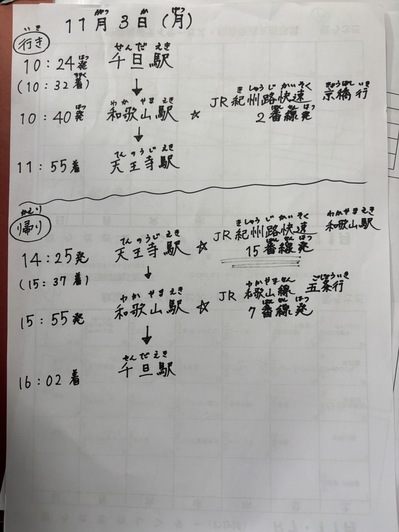 11月3日(月)
行き
10:24発 千旦駅
(10:32着)
10:40発 和歌山駅 ☆ JR紀州路快速 京橋行
2番線発
11:55着 天王寺駅
帰り
14:25発 天王寺駅 ☆ JR紀州路快速 和歌山駅
15番線発
(15:37着)
15:55発 和歌山駅 ☆ JR和歌山線 五条行
7番線発
16:02着 千旦駅